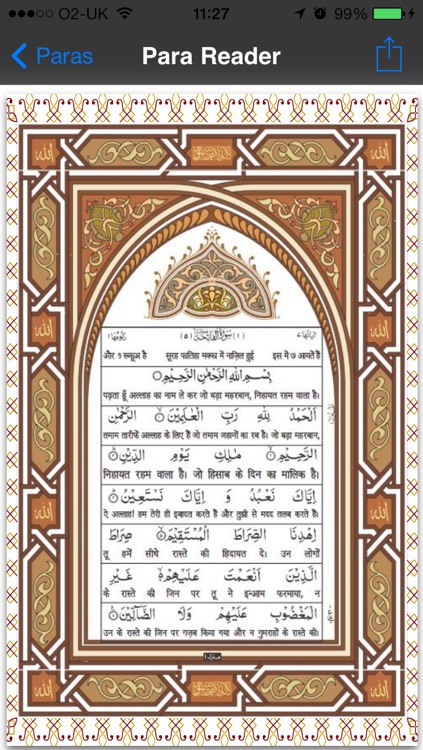 O2-UK 11:27 99%
Paras Para Reader
(١) سُوْرَةُ الْفَاتِحَةِ (٥)
और १ रुकूअ है सूरह फातिहा मक्का में नाज़िल हुई इस में ७ आयतें हैं
بِسْمِ اللّٰهِ الرَّحْمٰنِ الرَّحِيْمِ
पढ़ता हूँ अल्लाह का नाम ले कर जो बड़ा महरबान, निहायत रहम वाला है।
اَلْحَمْدُ لِلّٰهِ رَبِّ الْعٰلَمِيْنَ الرَّحْمٰنِ
तमाम तारीफें अल्लाह के लिए हैं जो तमाम जहानों का रब है। जो बड़ा महरबान,
الرَّحِيْمِ مٰلِكِ يَوْمِ الدِّيْنِ
निहायत रहम वाला है। जो हिसाब के दिन का मालिक है।
اِيَّاكَ نَعْبُدُ وَ اِيَّاكَ نَسْتَعِيْنُ
ऐ अल्लाह! हम तेरी ही इबादत करते हैं और तुझी से मदद तलब करते हैं।
اِهْدِنَا الصِّرَاطَ الْمُسْتَقِيْمَ صِرَاطَ
तू हमें सीधे रास्ते की हिदायत दे। उन लोगों
الَّذِيْنَ اَنْعَمْتَ عَلَيْهِمْ غَيْرِ
के रास्ते की जिन पर तू ने इन्आम फरमाया, न
الْمَغْضُوْبِ عَلَيْهِمْ وَلَا الضَّآلِّيْنَ
उन के रास्ते की जिन पर गज़ब किया गया और न गुमराहों के रास्ते की।